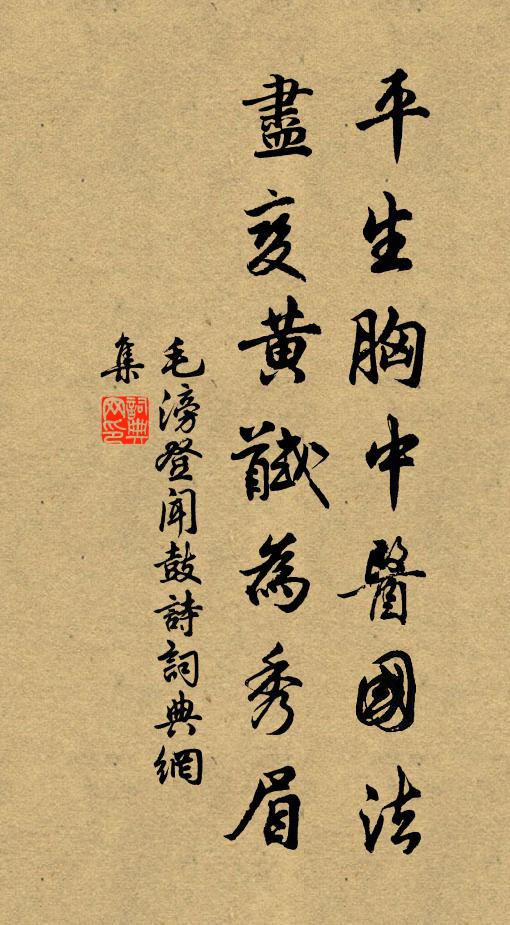 平生胸中醫國法
盡變黃馘為秀眉
毛滂登聞鼓詩詞典網
集
詞典
网印